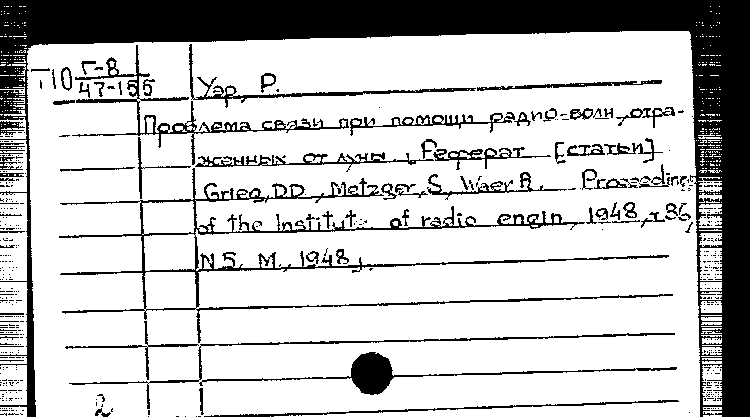 Т10 Г-8
47-155
Уэр, Р.
Проблема связи при помощи радио-волн, отра-
женных от луны. Реферат [статьи]
Grieg, DD, Metzger, S, Waer R. Proceedings
of the Institute of radio engin, 1948, т 36,
N5. М., 1948.
2